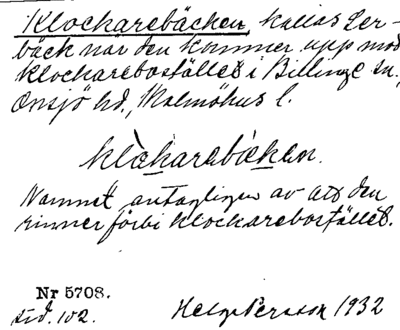 Klockarebäcken, kallas Ler-
bäck när den kommer upp mot
klockarebostället i Billinge sn.,
Onsjö hd., Malmöhus l.
klòckarebä̀ken.
Namnet antagligen av att den
rinner förbi klockarebostället.
Nr 5708.
sid. 102.
Helge Persson 1932